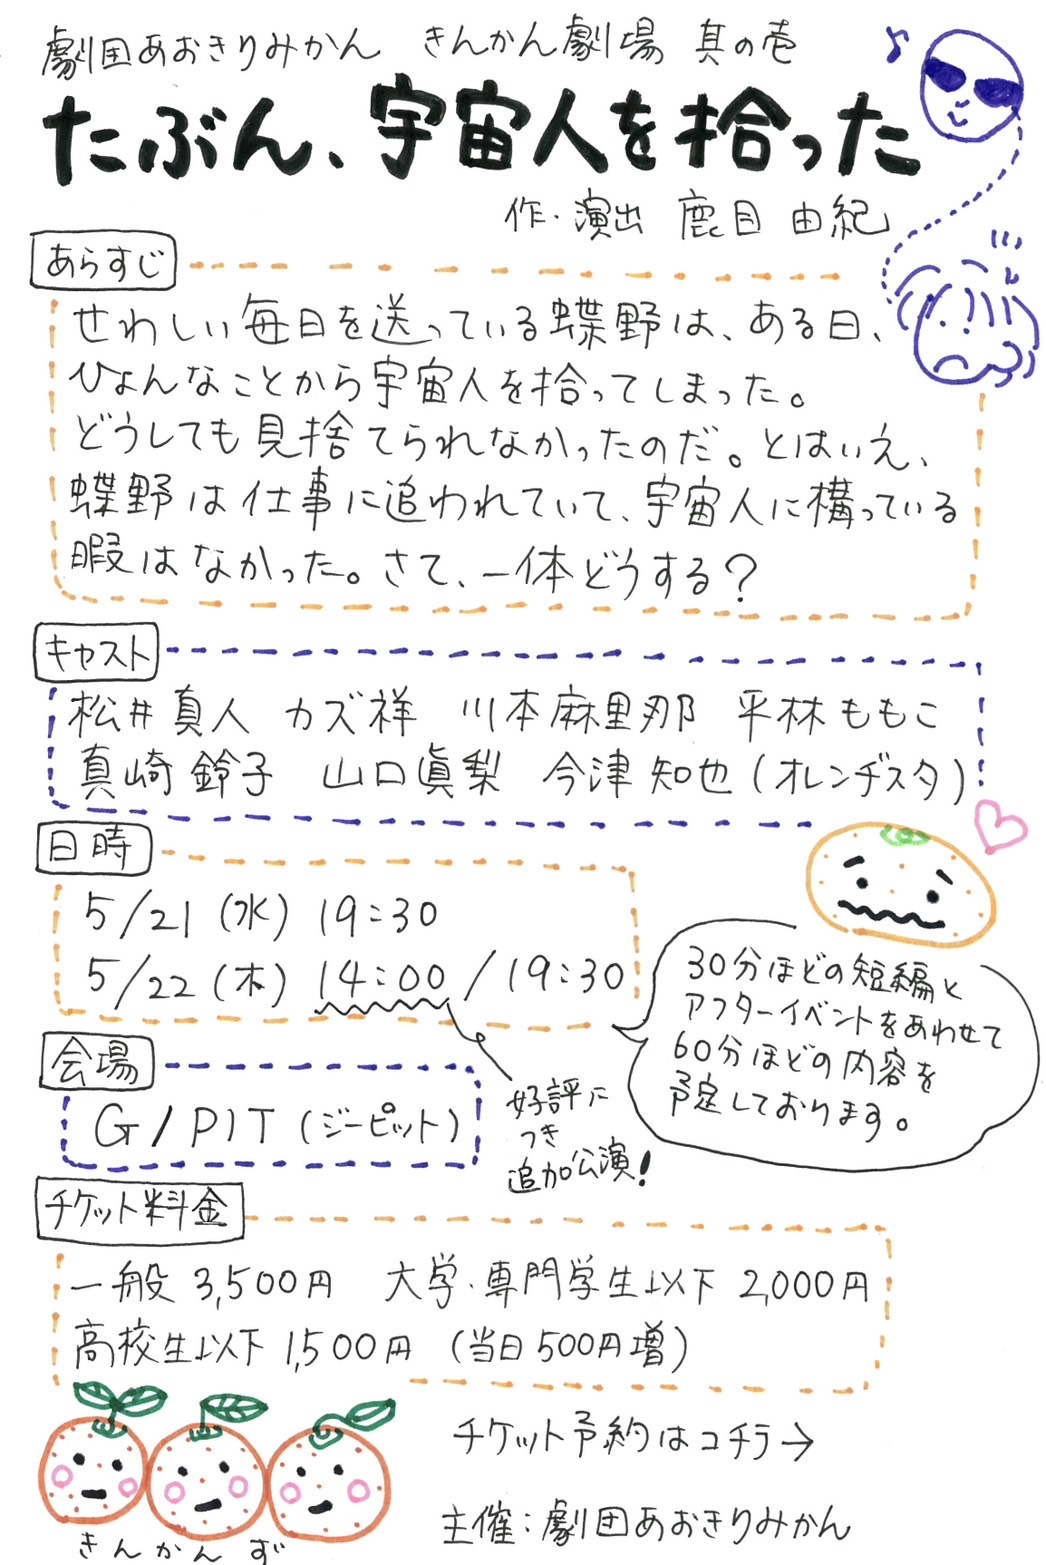 劇団あおきりみかん きんかん劇場 其の壱
たぶん、宇宙人を拾った
作・演出 鹿目 由紀
あらすじ
せわしい毎日を送っている蝶野は、ある日、
ひょんなことから宇宙人を拾ってしまった。
どうしても見捨てられなかったのだ。とはいえ、
蝶野は仕事に追われていて、宇宙人に構っている
暇はなかった。さて、一体どうする?
キャスト
松井真人 カズ祥 川本麻里那 平林ももこ
真崎鈴子 山口眞梨 今津知也(オレンヂスタ)
日時
5/21(水) 19:30
5/22(木) 14:00/19:30
好評に
つき
追加公演!
30分ほどの短編と
アフターイベントをあわせて
60分ほどの内容を
予定しております。
会場
G/PIT(ジーピット)
チケット料金
一般 3,500円 大学・専門学生以下 2,000円
高校生以下 1,500円 (当日500円増)
チケット予約はコチラ→
主催:劇団あおきりみかん
きんかんず